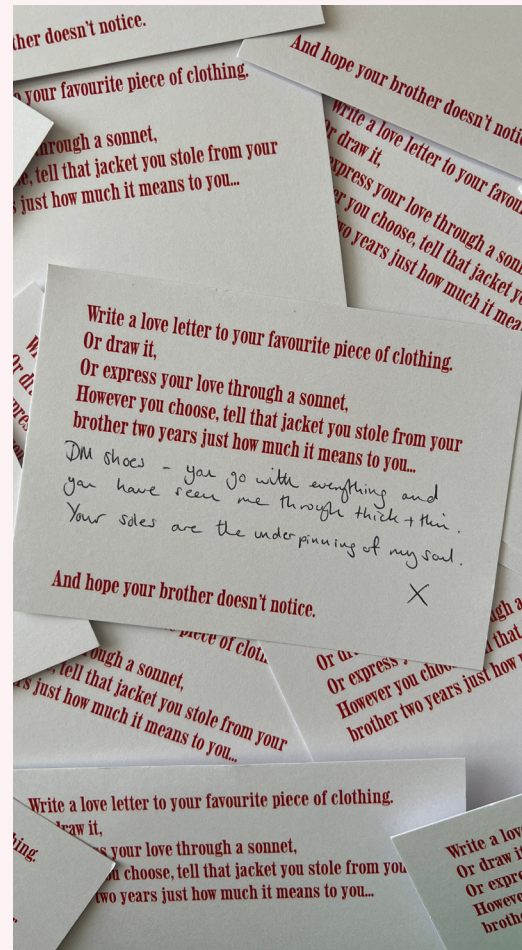 ther doesn't notice.
your favourite piece of clothing.
hrough a sonnet,
e, tell that jacket you stole from your
s just how much it means to you...
And hope your brother doesn't notic
Write a love letter to your favou
Or draw it,
express your love through a son
er you choose, tell that jacket y
two years just how much it mea
Write a love letter to your favourite piece of clothing.
Or draw it,
Or express your love through a sonnet,
However you choose, tell that jacket you stole from your
brother two years just how much it means to you...
DM shoes - you go with everything and
you have seen me through thick + thin.
Your soles are the underpinning of my soul.
X
And hope your brother doesn't notice.
W
Or dr
expres
piece of cloth
ough a sonnet,
tell that jacket you stole from your
s just how much it means to you...
gh a
Or dr
Or express
However you choo that
brother two years just how
Write a love letter to your favourite piece of clothing.
raw it,
s your love through a sonnet,
u choose, tell that jacket you stole from you
two years just how much it means to you...
hing.
Write a lov
Or draw it
Or expre
Howeve
broth